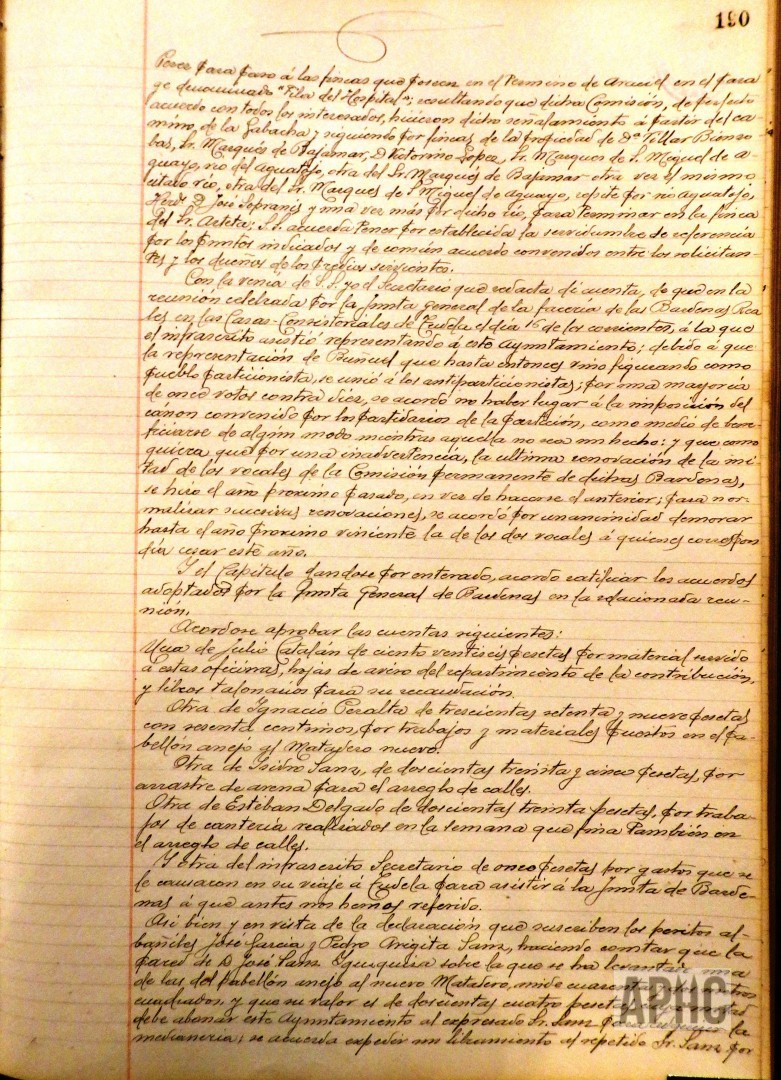 190
Perez para paso á las fincas que poseen en el término de Araciel en el para
ge denominado "Fila del Hospital"; resultando que dicha Comisión, de perfecto
acuerdo con todos los interesados, hicieron dicho señalamiento á partir del ca-
mino, de la Gabacha y siguiendo por fincas de la propiedad de Dª Pillar Bienzo-
bas, Sr. Marqués de Bajamar, D. Victorino Lopez, Sr. Marques de S. Miguel de A-
guayo, rio del Aguatejo, otra del Sr. Marqués de Bajamar otra vez el mismo
citado rio, otra del Sr. Marques de S. Miguel de Aguayo, repite por rio Aguatejo,
Herds D. José Sopranis y una vez más por dicho rio, para terminar en la finca
del Sr. Arteta; S.S. acuerda tener por establecida la servidumbre de referencia
por los puntos indicados y de común acuerdo convenidos entre los solicitan-
tes y los dueños de los predios sirvientes.
Con la venia de S.S. yo el Secretario que redacta di cuenta, de que en la
reunión celebrada por la Junta general de la facería de las Bardenas Rea
les en las Casas-Consistoriales de Tudela el dia 16 de los corrientes, á la que
el infrascrito asistió representando á este Ayuntamiento; debido á que
la representación de Buñuel que hasta entonces vino figurando como
pueblo particionista, se unió á los antiparticionistas; por una mayoría
de once votos contra diez, se acordó no haber lugar á la imposición del
cánon convenido por los partidarios de la partición, como medio de bene-
ficiarse de algún modo mientras aquella no sea un hecho: y que como
quiera que por una inadvertencia, la ultima renovación de la mi-
tad de los vocales de la Comisión permanente de dichas Bardenas,
se hizo el año proximo pasado, en vez de hacerse el anterior; para nor-
malizar sucesivas renovaciones, se acordó por unanimidad demorar
hasta el año proximo viniente la de los dos vocales á quienes correspon
día cesar este año.
Y el Capítulo dandose por enterado, acordó ratificar los acuerdos
adoptados por la Junta General de Bardenas en la relacionada reu-
nión.
Acordose aprobar las cuentas siguientes:
Una de Julio Catalán de ciento ventiseis pesetas por material servido
á estas oficinas, hojas de aviso del repartimiento de la contribución,
y libros talonarios para su recaudación.
Otra de Ignacio Peralta de trescientas setenta y nueve pesetas
con sesenta centimos, por trabajos y materiales puestos en el pa-
bellón anejo al Matadero nuevo.
Otra de Isidro Sanz, de doscientas treinta y cinco pesetas, por
arrastre de arena para el arreglo de calles.
Otra de Esteban Delgado de doscientas treinta pesetas, por traba-
jos de cantería realizados en la semana que fina también en
el arreglo de calles.
Y otra del infrascrito Secretario de once pesetas por gastos que se
le causaron en su viaje á Tudela para asistir á la Junta de Barde-
nas á que antes nos hemos referido.
Asi bien y en vista de la declaración que suscriben los peritos al-
bañiles José Garcia y Pedro Angita Sanz, haciendo constar que la
pared de D. José Sanz Eguiguia sobre la que se ha levantado una
de las del pabellón anejo al nuevo Matadero, mide cuarenta
cuadrados, y que su valor es de doscientas cuatro pesetas
debe abonar este Ayuntamiento al expresado Sr. Sanz la
medianeria; se acuerda expedir un libramiento al repetido Sr. Sanz por
APHC